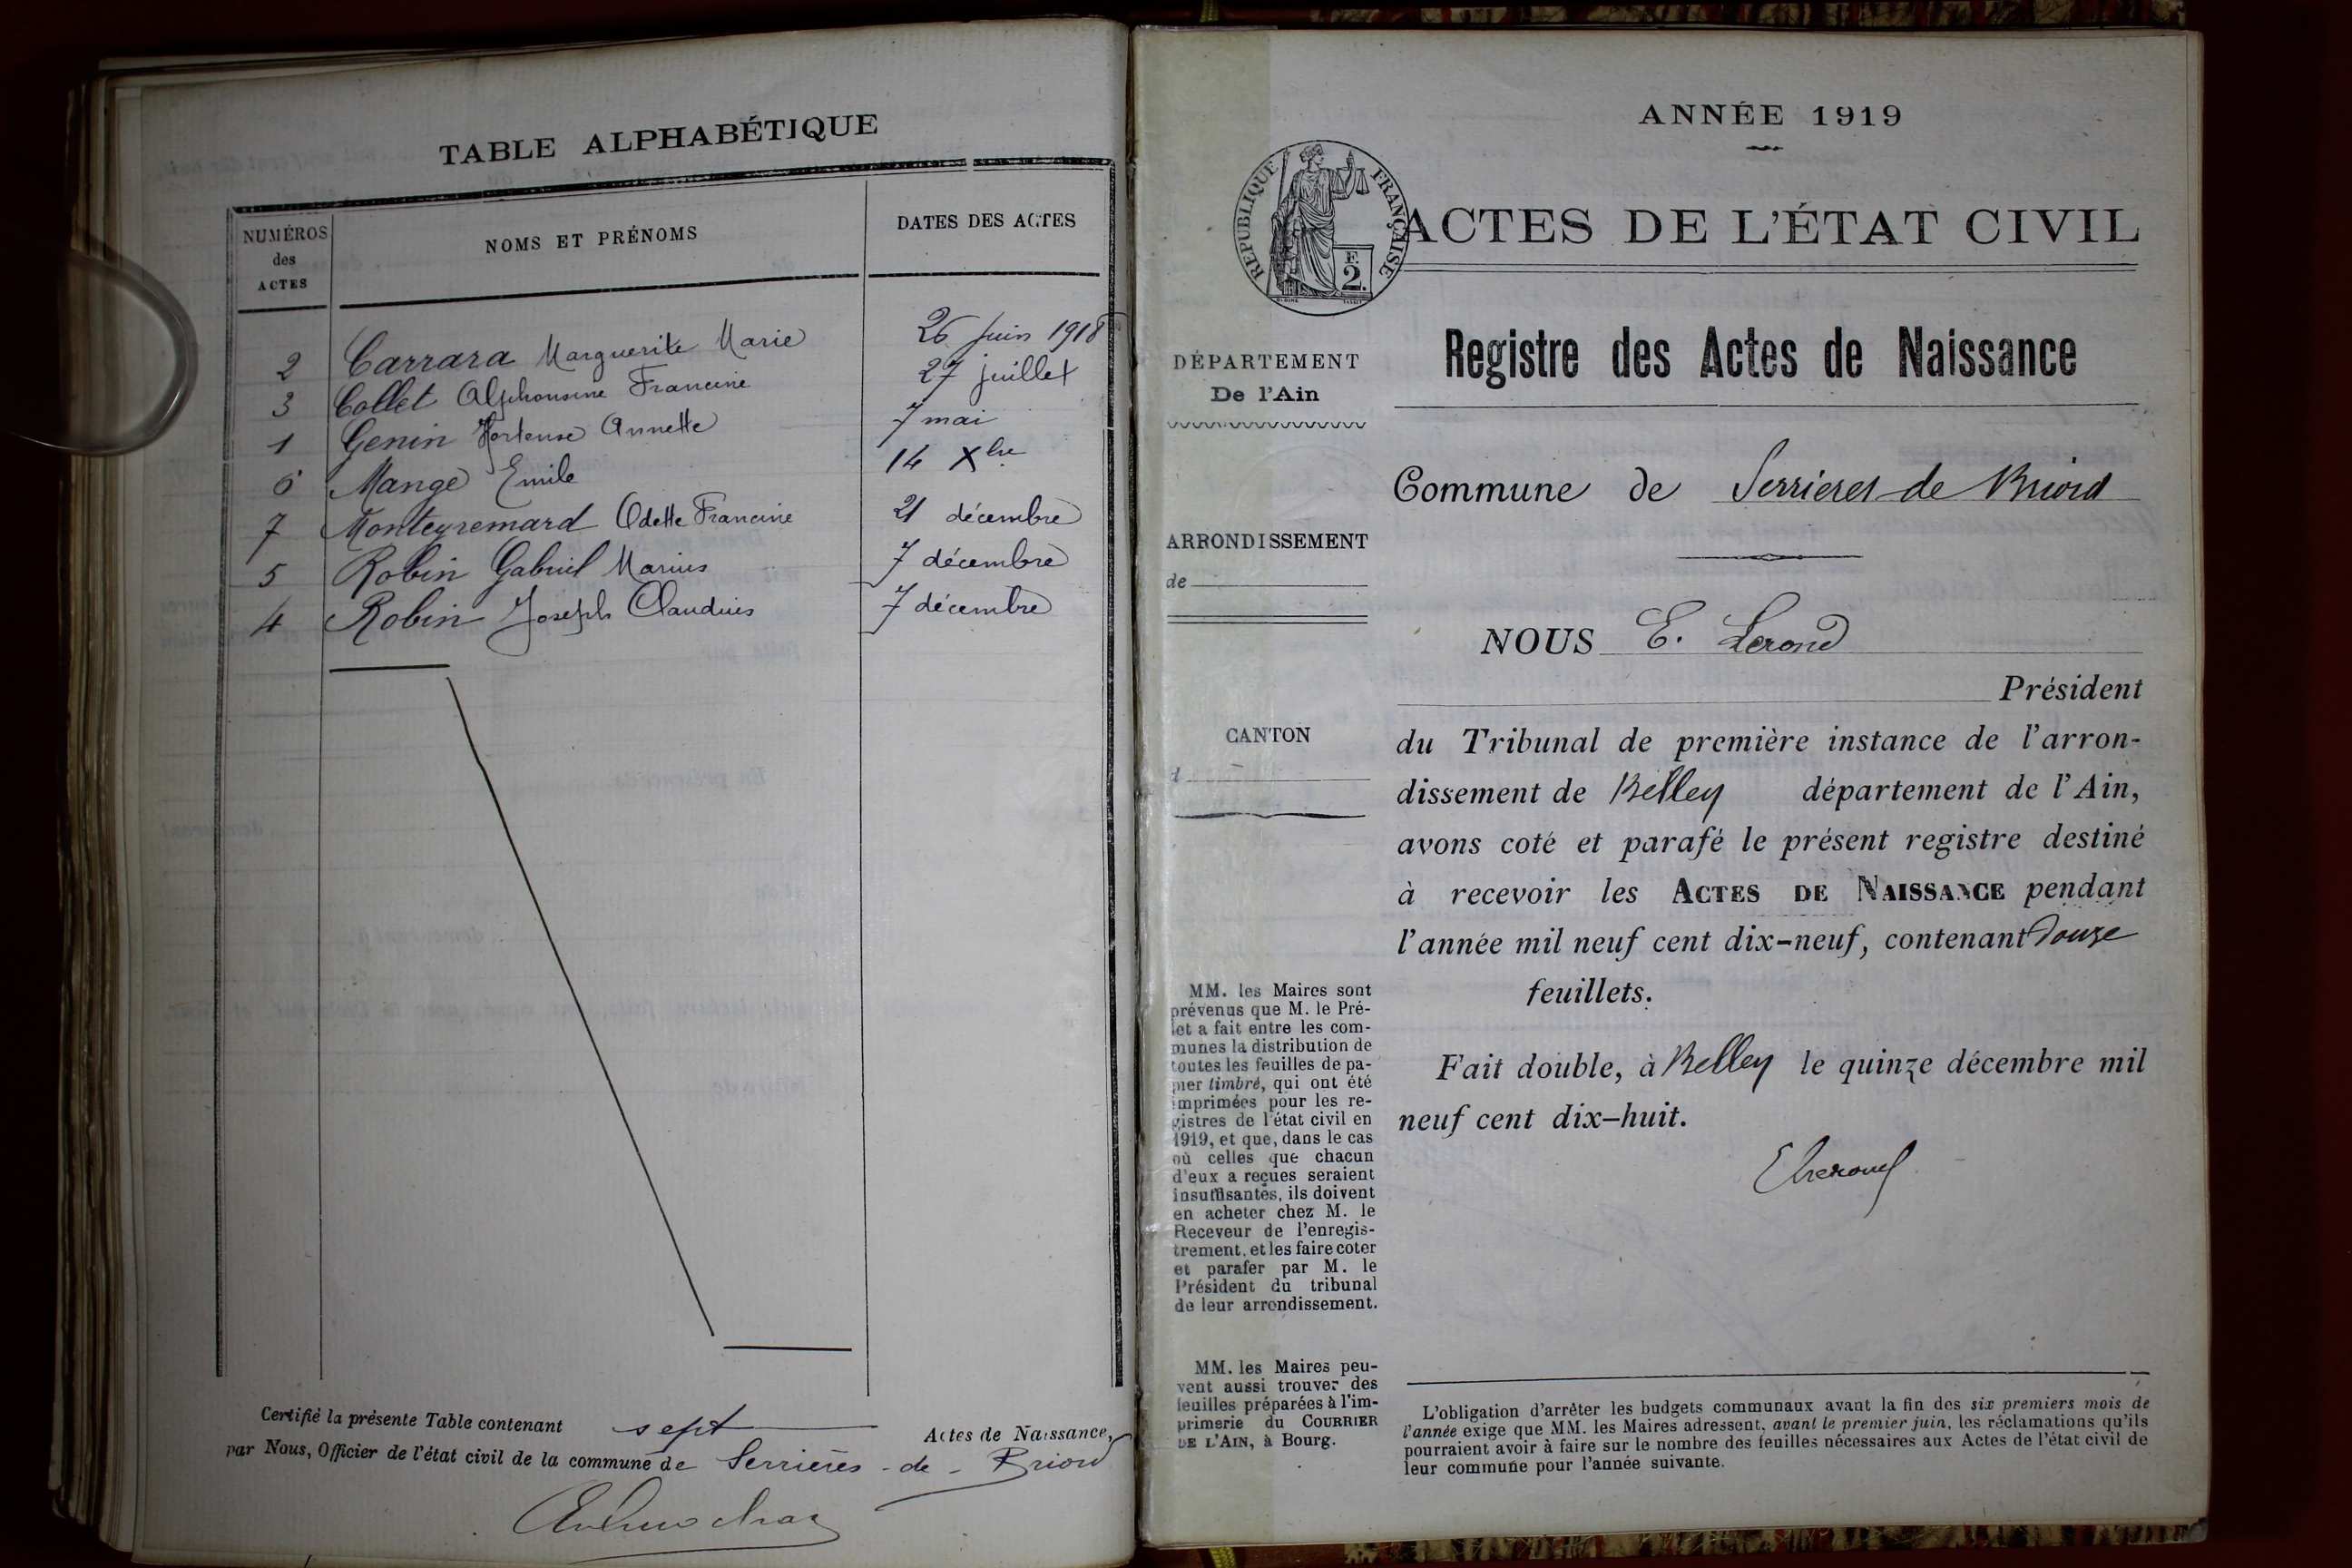 TABLE ALPHABÉTIQUE
NUMÉROS
des
ACTES
NOMS ET PRÉNOMS
DATES DES ACTES
2 Carrara Marguerite Marie 26 Juin 1918
3 Collet Alphonsine Francine 27 juillet
1 Genin Hortense Annette 7 mai
6 Mange Emile 14 Xbre
7 Monteyremard Odette Francine 21 décembre
5 Robin Gabriel Marius 7 décembre
4 Robin Joseph Claudius 7 décembre
Certifié la présente Table contenant sept Actes de Naissance,
par Nous, Officier de l'état civil de la commune de Serrières-de-Briord
ANNÉE 1919
RÉPUBLIQUE FRANÇAISE
F.
2.
ACTES DE L'ÉTAT CIVIL
Registre des Actes de Naissance
DÉPARTEMENT
De l'Ain
Commune de Serrieres de Briord
ARRONDISSEMENT
de
NOUS E. Lerond
Président
CANTON
d
du Tribunal de première instance de l'arron-
dissement de Belley département de l'Ain,
avons coté et parafé le présent registre destiné
à recevoir les ACTES DE NAISSANCE pendant
l'année mil neuf cent dix-neuf, contenant douze
feuillets.
Fait double, à Belley le quinze décembre mil
neuf cent dix-huit.
ELerond
MM. les Maires sont
prévenus que M. le Pré-
fet a fait entre les com-
munes la distribution de
toutes les feuilles de pa-
pier timbré, qui ont été
imprimées pour les re-
gistres de l'état civil en
1919, et que, dans le cas
où celles que chacun
d'eux a reçues seraient
insuffisantes, ils doivent
en acheter chez M. le
Receveur de l'enregis-
trement, et les faire coter
et parafer par M. le
Président du tribunal
de leur arrondissement.
MM. les Maires peu-
vent aussi trouver des
feuilles préparées à l'im-
primerie du COURRIER
DE L'AIN, à Bourg.
L'obligation d'arrêter les budgets communaux avant la fin des six premiers mois de
l'année exige que MM. les Maires adressent, avant le premier juin, les réclamations qu'ils
pourraient avoir à faire sur le nombre des feuilles nécessaires aux Actes de l'état civil de
leur commune pour l'année suivante.